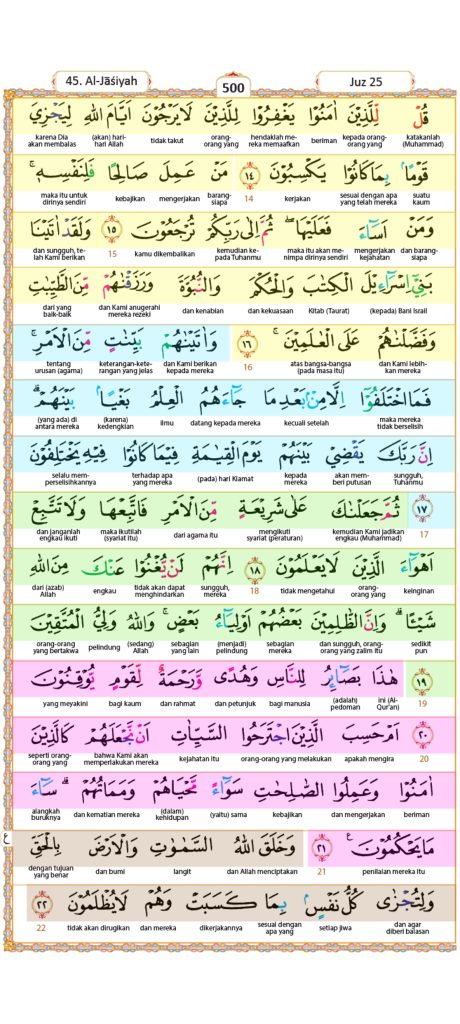 45. Al-Jāśiyah
500
Juz 25
قُلْ لِّلَّذِيْنَ اٰمَنُوْا يَغْفِرُوْا لِلَّذِيْنَ لَا يَرْجُوْنَ اَيَّامَ اللّٰهِ لِيَجْزِيَ
katakanlah (Muhammad) kepada orang-orang yang beriman hendaklah mereka memaafkan orang-orang yang tidak takut (akan) hari-hari Allah karena Dia akan membalas
قَوْمًاۢ بِمَا كَانُوْا يَكْسِبُوْنَ ١٤ مَنْ عَمِلَ صَالِحًا فَلِنَفْسِهٖۚ
suatu kaum sesuai dengan apa yang telah mereka kerjakan 14 barang-siapa mengerjakan kebajikan maka itu untuk dirinya sendiri
وَمَنْ اَسَاۤءَ فَعَلَيْهَاۖ ثُمَّ اِلٰى رَبِّكُمْ تُرْجَعُوْنَ ١٥ وَلَقَدْ اٰتَيْنَا
dan barang-siapa mengerjakan kejahatan maka itu akan me-nimpa dirinya sendiri kemudian ke-pada Tuhanmu kamu dikembalikan 15 dan sungguh, te-lah Kami berikan
بَنِيْٓ اِسْرَاۤءِيْلَ الْكِتٰبَ وَالْحُكْمَ وَالنُّبُوَّةَ وَرَزَقْنٰهُمْ مِّنَ الطَّيِّبٰتِ
(kepada) Bani Israil Kitab (Taurat) dan kekuasaan dan kenabian dan Kami anugerahi mereka rezeki dari yang baik-baik
وَفَضَّلْنٰهُمْ عَلَى الْعٰلَمِيْنَۚ ١٦ وَاٰتَيْنٰهُمْ بَيِّنٰتٍ مِّنَ الْاَمْرِۚ
dan Kami lebih-kan mereka atas bangsa-bangsa (pada masa itu) 16 dan Kami berikan kepada mereka keterangan-kete-rangan yang jelas tentang urusan (agama)
فَمَا اخْتَلَفُوْٓا اِلَّا مِنْۢ بَعْدِ مَا جَاۤءَهُمُ الْعِلْمُ بَغْيًاۢ بَيْنَهُمْۗ
maka mereka tidak berselisih kecuali setelah datang kepada mereka ilmu (karena) kedengkian (yang ada) di antara mereka
اِنَّ رَبَّكَ يَقْضِيْ بَيْنَهُمْ يَوْمَ الْقِيٰمَةِ فِيْمَا كَانُوْا فِيْهِ يَخْتَلِفُوْنَ
sungguh, Tuhanmu akan mem-beri putusan kepada mereka (pada) hari Kiamat terhadap apa yang mereka selalu mem-perselisihkannya
١٧ ثُمَّ جَعَلْنٰكَ عَلٰى شَرِيْعَةٍ مِّنَ الْاَمْرِ فَاتَّبِعْهَا وَلَا تَتَّبِعْ
17 kemudian Kami jadikan engkau (Muhammad) mengikuti syariat (peraturan) dari agama itu maka ikutilah (syariat itu) dan janganlah engkau ikuti
اَهْوَاۤءَ الَّذِيْنَ لَا يَعْلَمُوْنَ ١٨ اِنَّهُمْ لَنْ يُّغْنُوْا عَنْكَ مِنَ اللّٰهِ
keinginan orang-orang yang tidak mengetahui 18 sungguh, mereka tidak akan dapat menghindarkan engkau dari (azab) Allah
شَيْـًٔاۗ وَاِنَّ الظّٰلِمِيْنَ بَعْضُهُمْ اَوْلِيَاۤءُ بَعْضٍۚ وَاللّٰهُ وَلِيُّ الْمُتَّقِيْنَ
sedikit pun dan sungguh, orang-orang yang zalim itu sebagian mereka (menjadi) pelindung sebagian yang lain (sedang) Allah pelindung orang-orang yang bertakwa
١٩ هٰذَا بَصَاۤىِٕرُ لِلنَّاسِ وَهُدًى وَّرَحْمَةٌ لِّقَوْمٍ يُّوْقِنُوْنَ
19 ini (Al-Qur'an) (adalah) pedoman bagi manusia dan petunjuk dan rahmat bagi kaum yang meyakini
٢٠ اَمْ حَسِبَ الَّذِيْنَ اجْتَرَحُوا السَّيِّاٰتِ اَنْ نَّجْعَلَهُمْ كَالَّذِيْنَ
20 apakah mengira orang-orang yang melakukan kejahatan itu bahwa Kami akan memperlakukan mereka seperti orang-orang yang
اٰمَنُوْا وَعَمِلُوا الصّٰلِحٰتِ سَوَاۤءً مَّحْيَاهُمْ وَمَمَاتُهُمْۗ سَاۤءَ
beriman dan mengerjakan kebajikan (yaitu) sama (dalam) kehidupan dan kematian mereka alangkah buruknya
مَا يَحْكُمُوْنَࣖ ٢١ وَخَلَقَ اللّٰهُ السَّمٰوٰتِ وَالْاَرْضَ بِالْحَقِّ
ع
penilaian mereka itu 21 dan Allah menciptakan langit dan bumi dengan tujuan yang benar
وَلِتُجْزٰى كُلُّ نَفْسٍۢ بِمَا كَسَبَتْ وَهُمْ لَا يُظْلَمُوْنَ ٢٢
dan agar diberi balasan setiap jiwa sesuai dengan apa yang dikerjakannya dan mereka tidak akan dirugikan 22